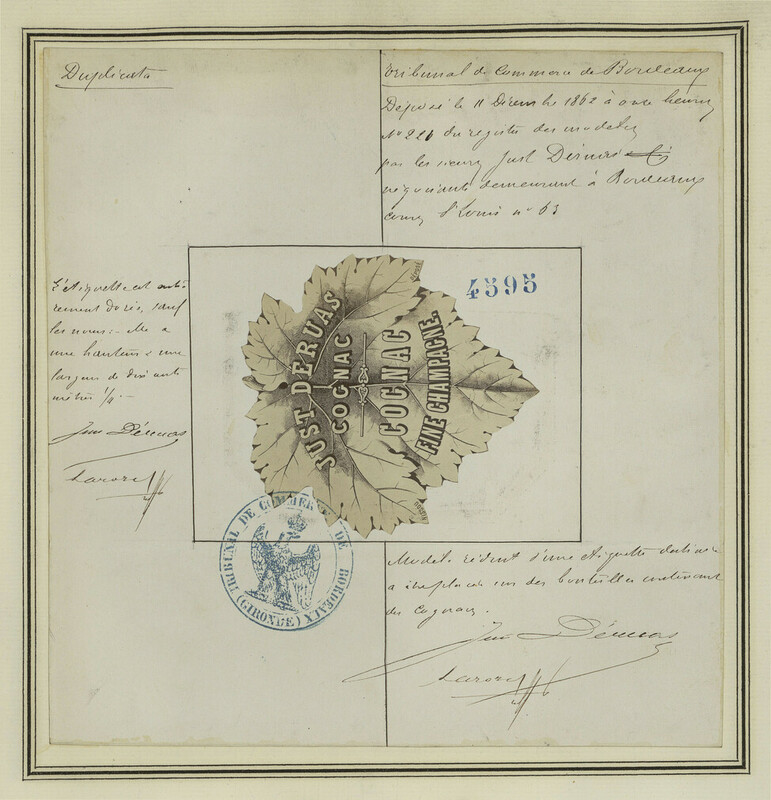 Duplicata
Tribunal de Commerce de Bordeaux
Déposé le 11 Décembre 1862 à onze heures
N° 221 du registre des modèles
par les sieurs Just Déruas
négociants demeurant à Bordeaux
cours St Louis n° 63
L'étiquette est enti-
rement dorée, sauf
les noms :- elle a
une hauteur & une
largeur de dix centi
mètres 1/4 -
Just Déruas
4595
JUST DERUAS
COGNAC
COGNAC
FINE CHAMPAGNE.
TRIBUNAL DE COMMERCE DE BORDEAUX
(GIRONDE)
Modèle réduit d'une étiquette destinée
a être placée sur des bouteilles contenant
des Cognacs.
Just Déruas